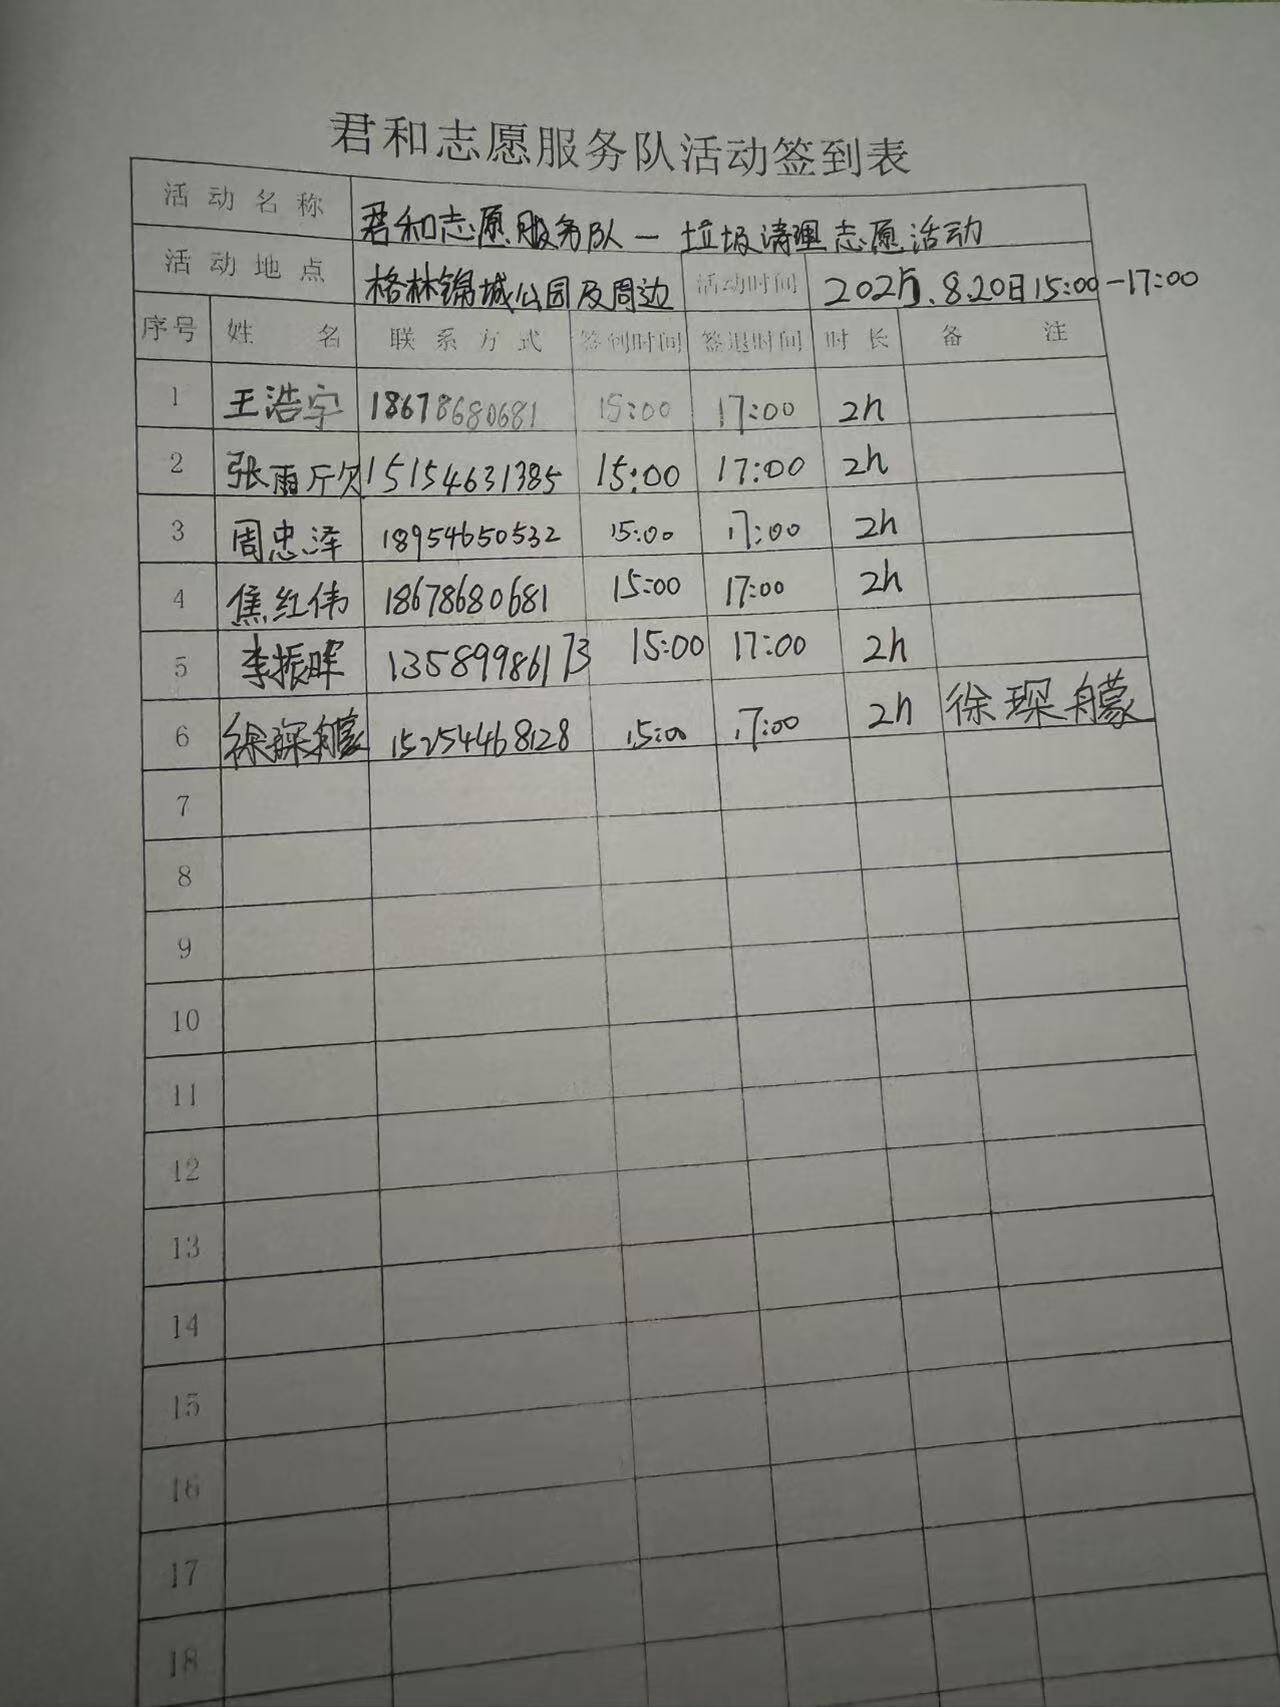 君和志愿服务队活动签到表
活动名称 君和志愿服务队一垃圾清理志愿活动
活动地点 格林锦城公园及周边 活动时间 2025.8.20日15:00-17:00
序号 姓名 联系方式 签到时间 签退时间 时长 备注
1 王浩宇 18678680681 15:00 17:00 2h
2 张雨欣 15154631385 15:00 17:00 2h
3 周忠泽 18954650532 15:00 17:00 2h
4 焦红伟 18678680681 15:00 17:00 2h
5 李振晖 13589986173 15:00 17:00 2h
6 徐琛艨 15254468128 15:00 17:00 2h 徐琛艨
7
8
9
10
11
12
13
14
15
16
17
18